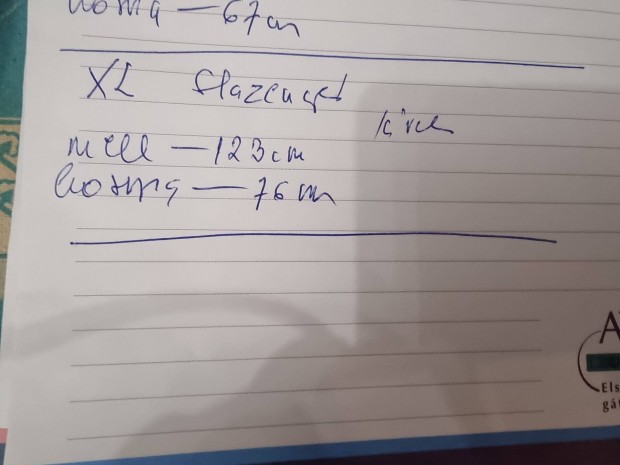 hossza — 67 cm
XL Slazenger
mell — 123 cm
hossza — 76 cm
A
Els
gá